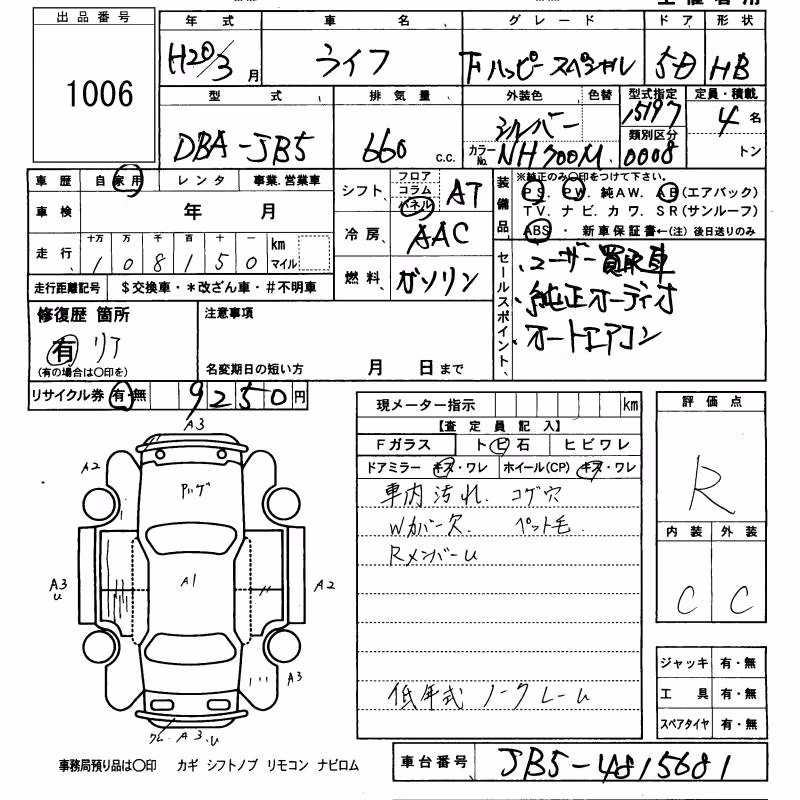 出品番号
1006
年式 車名 グレード ドア 形状
H20/3月 ライフ F ハッピースペシャル 5D HB
型式 排気量 外装色 色替 型式指定 定員・積載
15197
類別区分
DBA-JB5 660 c.c. シルバー カラーNo. NH700M 0008 4名
トン
車歴 自家用 レンタ 事業.営業車
車検 年 月
走行 十万 万 千 百 十 一 km マイル
108150
走行距離記号 $交換車・*改ざん車・#不明車
シフト フロア コラム パネル AT
冷房 AAC
燃料 ガソリン
装備品
※純正のみ○印をつけて下さい。
PS. PW. 純AW. AB(エアバック)
TV. ナビ. カワ. SR(サンルーフ)
ABS ・ 新車保証書←(注) 後日送りのみ
セールスポイント、
・ユーザー買取車
・純正オーディオ
・オートエアコン
修復歴 箇所
有 リア
(有の場合は○印を)
注意事項
名変期日の短い方 月 日まで
リサイクル券 有・無 9250円
現メーター指示 km
【査定員記入】
Fガラス トビ石 ヒビワレ
ドアミラー キズ・ワレ ホイール(CP) キズ・ワレ
車内汚れ. コゲ穴
Wカバー欠. ペット毛.
RメンバーU
低年式 ノークレーム
評価点
R
内装 外装
C C
ジャッキ 有・無
工具 有・無
スペアタイヤ 有・無
A3
A2
A1
A3
U
A2
A3
A3.U
事務局預り品は○印 カギ シフトノブ リモコン ナビロム
車台番号 JB5-4815681